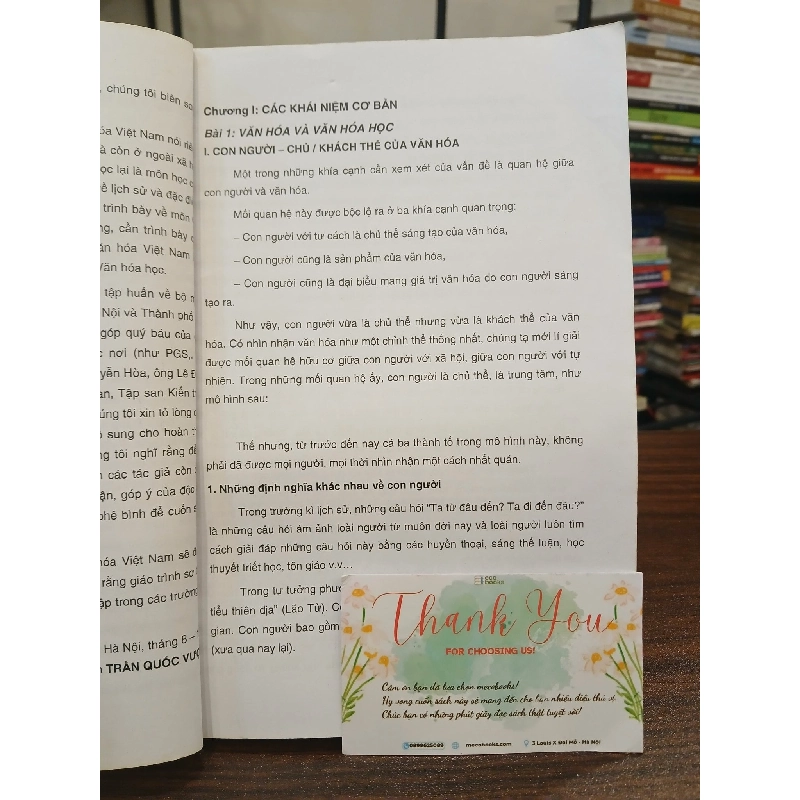 , chúng tôi biên so
óa Việt Nam nói riê
à còn ở ngoài xã h
ọc lại là môn học c
ề lịch sử và đặc đi
trình bày về môn
ng, cần trình bày c
ăn hóa Việt Nam
Văn hóa học.
tập huấn về bộ m
Nội và Thành phố
góp quý báu của
c nơi (như PGS,.
yễn Hòa, ông Lê Đ
an, Tập san Kiến t
úng tôi xin tỏ lòng
sung cho hoàn
ng tôi nghĩ rằng để
các tác giả còn s
ận, góp ý của độc
hệ bình để cuốn s
hóa Việt Nam sẽ đ
rằng giáo trình sơ
ập trong các trường
Hà Nội, tháng 6 –
TRẦN QUỐC VƯỢ
Chương I: CÁC KHÁI NIỆM CƠ BẢN
Bài 1: VĂN HÓA VÀ VĂN HÓA HỌC
I. CON NGƯỜI – CHỦ / KHÁCH THỂ CỦA VĂN HÓA
Một trong những khía cạnh cần xem xét của vấn đề là quan hệ giữa
con người và văn hóa.
Mối quan hệ này được bộc lộ ra ở ba khía cạnh quan trọng:
– Con người với tư cách là chủ thể sáng tạo của văn hóa,
– Con người cũng là sản phẩm của văn hóa,
– Con người cũng là đại biểu mang giá trị văn hóa do con người sáng
tạo ra.
Như vậy, con người vừa là chủ thể nhưng vừa là khách thể của văn
hóa. Có nhìn nhận văn hóa như một chỉnh thể thống nhất, chúng tạ mới lí giải
được mối quan hệ hữu cơ giữa con người với xã hội, giữa con người với tự
nhiên. Trong những mối quan hệ ấy, con người là chủ thể, là trung tâm, như
mô hình sau:
Thế nhưng, từ trước đến nay cả ba thành tố trong mô hình này, không
phải đã được mọi người, mọi thời nhìn nhận một cách nhất quán.
1. Những định nghĩa khác nhau về con người
Trong trường kì lịch sử, những câu hỏi "Ta từ đâu đến? Ta đi đến đâu?"
là những câu hỏi ám ảnh loài người từ muôn đời nay và loài người luôn tìm
cách giải đáp những câu hỏi này bằng các huyền thoại, sáng thế luận, học
thuyết triết học, tôn giáo v.v...
Trong tư tưởng phươ
tiểu thiên địa" (Lão Tử). C
gian. Con người bao gồm
(xưa qua nay lại).
eco books
Thank You
FOR CHOOSING US!
Cảm ơn bạn đã lựa chọn mecobooks!
Hy vọng cuốn sách này sẽ mang đến cho bạn nhiều điều thú vị.
Chúc bạn có những phút giây đọc sách thật tuyệt vời!
0898625089
mecobooks.com
3 Louis X Đại Mỗ - Hà Nội